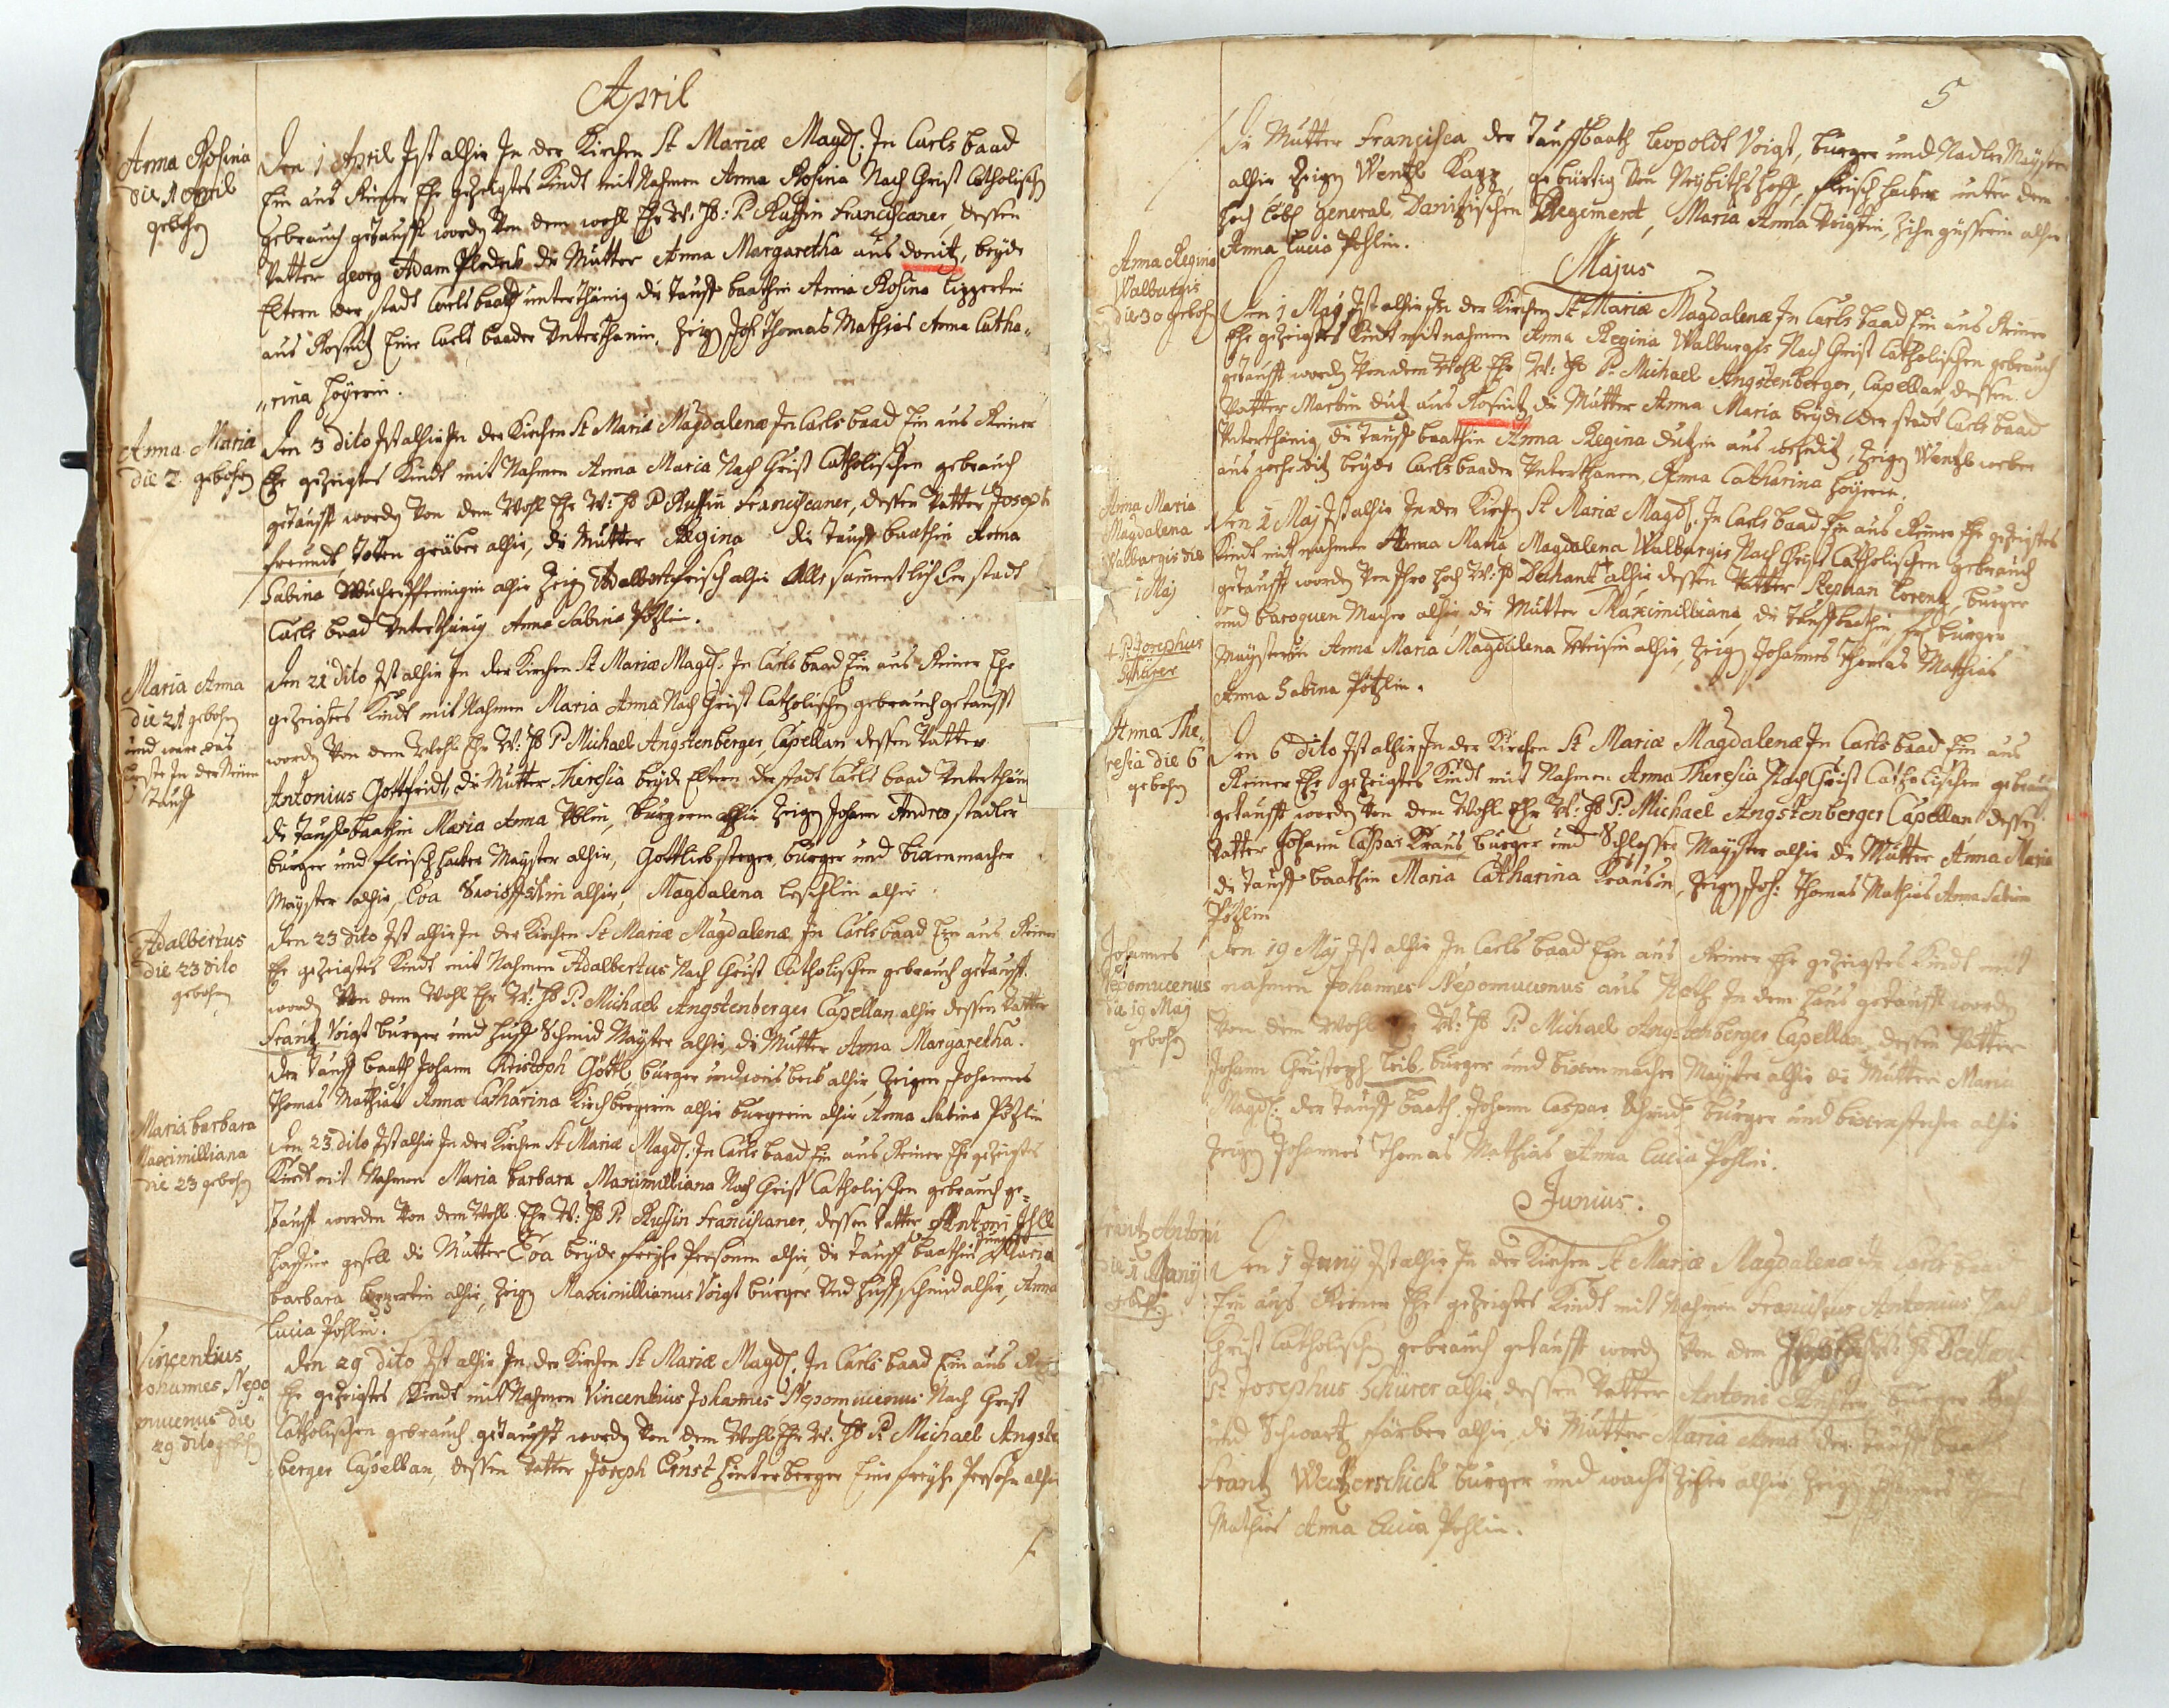 April
Anna Rosina
die 1 April
gebohrn
Den 1 April Ist alhir In der Kirchen St Mariæ Magd: In Carlsbaad
Ein aus Reiner Ehe gezeigtes Kindt mit Nahmen Anna Rosina Nach Christ Catholischen
gebrauch getaufft worden Von dem wohl Ehr W: H: P Ruffin Franciscaner, dessen
Vatter Georg Adam die Mutter Anna Margaretha aus donitz, beyde
Eltern der stadt Carls baad unterthänig die tauff baathin Anna Rosina Lippertin
aus Rosnitz Eine Carls baader Unterthanin, Zeigen Joh: Thomas Mathias Anna Catha„
„rina Hoyerin.
Anna Maria
die 2. gebohrn
Den 3 dito Ist alhir In der Kirchen St Mariæ Magdalenæ In Carls baad Ein aus Reiner
Ehe gezeigtes Kindt mit Nahmen Anna Maria Nach Christ Catholischen gebrauch
getaufft worden Von dem Wohl Ehr W: H P Ruffin Franciscaner, dessen Vatter Joseph
freundt, Toten gräber alhir, die Mutter Regina die Tauff baathin Anna
Sabina alhir Zeigen Adalbert frisch alhir Alle samentlich der stadt
Carls baad Unterthänig Anna Sabina Pötzlin.
Maria Anna
die 21 gebohrn
und ware das
Erste In der Neuen
Tauff
Den 21 dito Ist alhir In der Kirchen St Mariæ Magd: In Carls baad Ein aus Reiner Ehe
gezeigtes Kindt mit Nahmen Maria Anna Nach Christ Catholischen gebrauch getaufft
worden Von dem Wohl Ehr W: H P Michael Angstenberger Capellan dessen Vatter
Antonius Gottfridt, die Mutter Theresia beyde Eltern der stadt Carls baad Unterthän
die Tauff baathin Maria Anna burgerin alhir Zeigen Johann Andreas stadler
burger und fleisch hacker Mayster alhir, Gottlieb steger, burger und bixenmacher
Mayster alhir, Eva alhir, Magdalena Löschlin alhir
Adalbertus
die 23 dito
gebohrn
Den 23 dito Ist alhir In der Kirchen St Mariæ Magdalenæ In Carls baad Ein aus Reiner
Ehe gezeigtes Kindt mit Nahmen Adalbertus Nach Christ Catholischen gebrauch getaufft
worden Von dem Wohl Ehr W: H P: Michael Angstenberger Capellan alhir dessen Vatter
Frantz Voigt burger und Huff Schmid Mayster alhir, die Mutter Anna Margaretha.
der Tauff baath Johann Kristoph Göttl burger und weis beck alhir, Zeigen Johannes
Thomas Mathias Anna Catharina Kirchbergerin alhir burgerin alhir, Anna Sabina Pötzlin
Maria barbara
Maximilliana
die 23 gebohrn
Den 23 dito Ist alhir In der Kirchen St Mariæ Magd: In Carls baad Ein aus Reiner Ehe gezeigtes
Kindt mit Nahmen Maria barbara Maximilliana Nach Christ Catholischen gebrauch ge„
tauff worden Von dem Wohl Ehr W: H P: Ruffin Franciscaner, dessen Vatter Antoni
gesell die Mutter Eva beyde freyhe Personen alhir, die Tauff baathin Maria
barbara Lippertin alhir, Zeigen Maximillianus Voigt burger Und Huff schmid alhir, Anna
Lucia Pohlin.
Vincentius
Johannes Nepo
mucenus die
29 dito gebohrn
Den 29 dito Ist alhir In der Kirchen St Mariæ Magd: In Carls baad Ein aus
Ehe gezeigtes Kindt mit Nahmen Vincentius Johannes Nepomucenus Nach Christ
Catholischen gebrauch getaufft worden Von dem Wohl Ehr W: H P: Michael Angsten
berger Capellan, dessen Vatter Joseph Ernst Hinterberger Eine freyhe Person alhir
5
Die Mutter Francisca der Tauffbaath Leopoldt Voigt, burger und Nadler Mayster
alhir Zeigen Wentzl Kapp, gebürtig Von fleisch hacker unter dem
Hoch Löbl General Regiment, Maria Anna Voigtin, Zihn güsserin alhir
Anna Lucia Pohlin.
Majus
Anna Regina
Walburgis
die 30 gebohrn
Den 1 Maÿ Ist alhir In der Kirchen St Mariæ Magdalenæ In Carls baad Ein aus Reiner
Ehe gezeigtes Kindt mit nahmen Anna Regina Walburgis Nach Christ Catholischen gebrauch
getaufft worden Von dem Wohl Ehr W: H P: Michael Angstenberger, Capellan dessen
Vatter Martin dutz aus Rosnitz die Mutter Anna Maria beyde der stadt Carls baad
Unterthänig, die Tauff baathin Anna Regina Dutzin aus Zeigen Wentzl weber
aus beyde Carlsbaader Unterthanen, Anna Catharina Hoyerin.
Anna Maria
Magdalena
Walburgis die
1 Maj
+ P: Josephus
Schürer
Den 2 Maj Ist alhir In der Kirchen St Mariæ Magd: In Carls baad Ein aus Reiner Ehe gezeigtes
Kindt mit nahmen Anna Maria Magdalena Walburgis Nach Christ Catholischen gebrauch
getaufft worden Von Ihro Hoch W: H Dechant + alhir, dessen Vatter Stephan Lorentz, burger
und baroquen Macher alhir, die Mutter Maximilliana, die Tauff baathin burger
Maysterin Anna Maria Magdalena Weisin alhir, Zeigen Johannes Thomas Mathias
Anna Sabina Pötzlin.
Anna The„
resia die 6
gebohrn
Den 6 dito Ist alhir In der Kirchen St Mariæ Magdalenæ In Carls baad Ein aus
Reiner Ehe gezeigtes Kindt mit Nahmen Anna Theresia Nach Christ Catholischen gebrauch
getaufft worden Von dem Wohl Ehr W: H P: Michael Angstenberger Capellan dessen
Vatter Johann Caspar Kraus burger und Schlosser Mayster alhir die Mutter Anna Maria
die Tauff baathin Maria Catharina Krausin, Zeigen Joh: Thomas Mathias Anna Sabina
Pötzlin
Johannes
Nepomucenus
die 19 Maj
gebohrn
Den 19 Maj Ist alhir In Carls baad Ein aus Reiner Ehe gezeigtes Kindt mit
nahmen Johannes Nepomucenus aus Noth In dem Haus getaufft worden
Von dem Wohl Ehr W: H P: Michael Angstenberger Capellan, dessen Vatter
Johann Christoph Leib, burger und bixenmacher Mayster alhir die Mutter Maria
Magd: der Tauff baath Johann Caspar Schmidt burger und alhir
Zeigen Johannes Thomas Mathias Anna Lucia Pohlin.
Junius.
Frantz Antoni
die 1 Juny
gebohrn
Den 1 Juny Ist alhir In der Kirchen St Mariæ Magdalenæ In Carls baad
Ein aus Reiner Ehe gezeigtes Kindt mit Nahmen Franciscus Antonius Nach
Christ Catholischen gebrauch getaufft worden Von dem Dechant
P: Josephus Schürer alhir, dessen Vatter Antoni burger
und Schwartz färber alhir, die Mutter Maria Anna der Tauff baath
Frantz burger und wachs Ziher alhir Zeigen Johannes Thomas
Mathias Anna Lucia Pohlin.